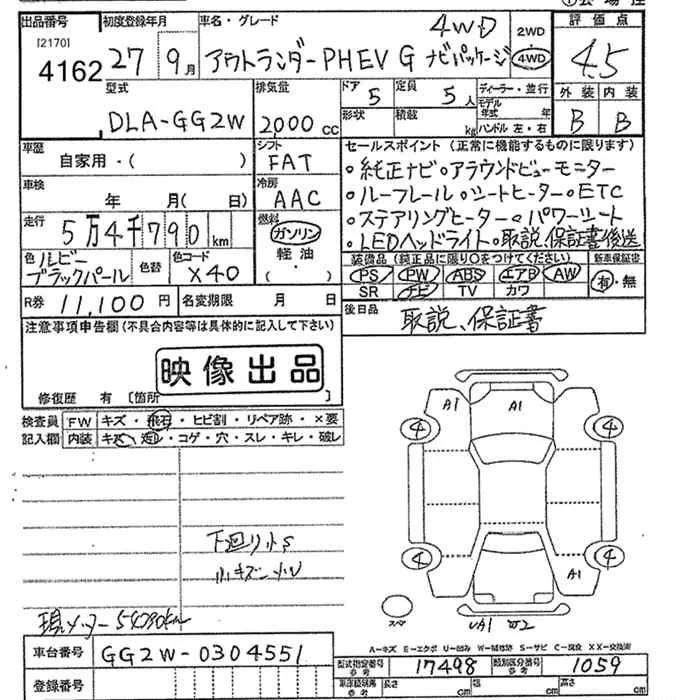 出品番号 初度登録年月 車名・グレード 評価点
[2170] 4162 27 9月 アウトランダーPHEV G ナビパッケージ 4WD 2WD 4WD 4.5
型式 排気量 ドア 5 定員 5人 ディーラー・並行 外装 内装
DLA-GG2W 2000cc 形状 積載 kg モデル年式 年 ハンドル 左・右 B B
車歴 シフト セールスポイント (正常に機能するものに限ります)
自家用・( ) FAT ・純正ナビ・アラウンドビューモニター
車検 冷房 ・ルーフレール・シートヒーター・ETC
年 月(日 ) AAC ・ステアリングヒーター・パワーシート
走行 5万4千790km 燃料 ガソリン ・LEDヘッドライト・取説、保証書後送
軽油 装備品 (純正品に限り○をつけてください) 新車保証書
色 ルビーブラックパール 色替 色コード X40 ・( ) PS PW ABS エアB AW 有・無
SR ナビ TV カワ
R券 11,100円 名変期限 月 日 後日品 取説、保証書
注意事項申告欄(不具合内容等は具体的に記入して下さい)
映像出品
修復歴 有 [箇所
検査員 FW キズ・飛石・ヒビ割・リペア跡・×要
記入欄 内装 キズ・ ・コゲ・穴・スレ・キレ・破レ
A1 A1
4 4
4 4
A1
下廻り小S
小キズ
スペア UA1 W2
現メーター
A-キズ E-エクボ U-凹み W-補修跡 S-サビ C-腐食 XX-交換済
車台番号 GG2W-0304551 型式指定番号 参考 17498 類別区分番号 参考 1059
登録番号 車庫証明用 参考 長さ cm 幅 cm 高さ cm